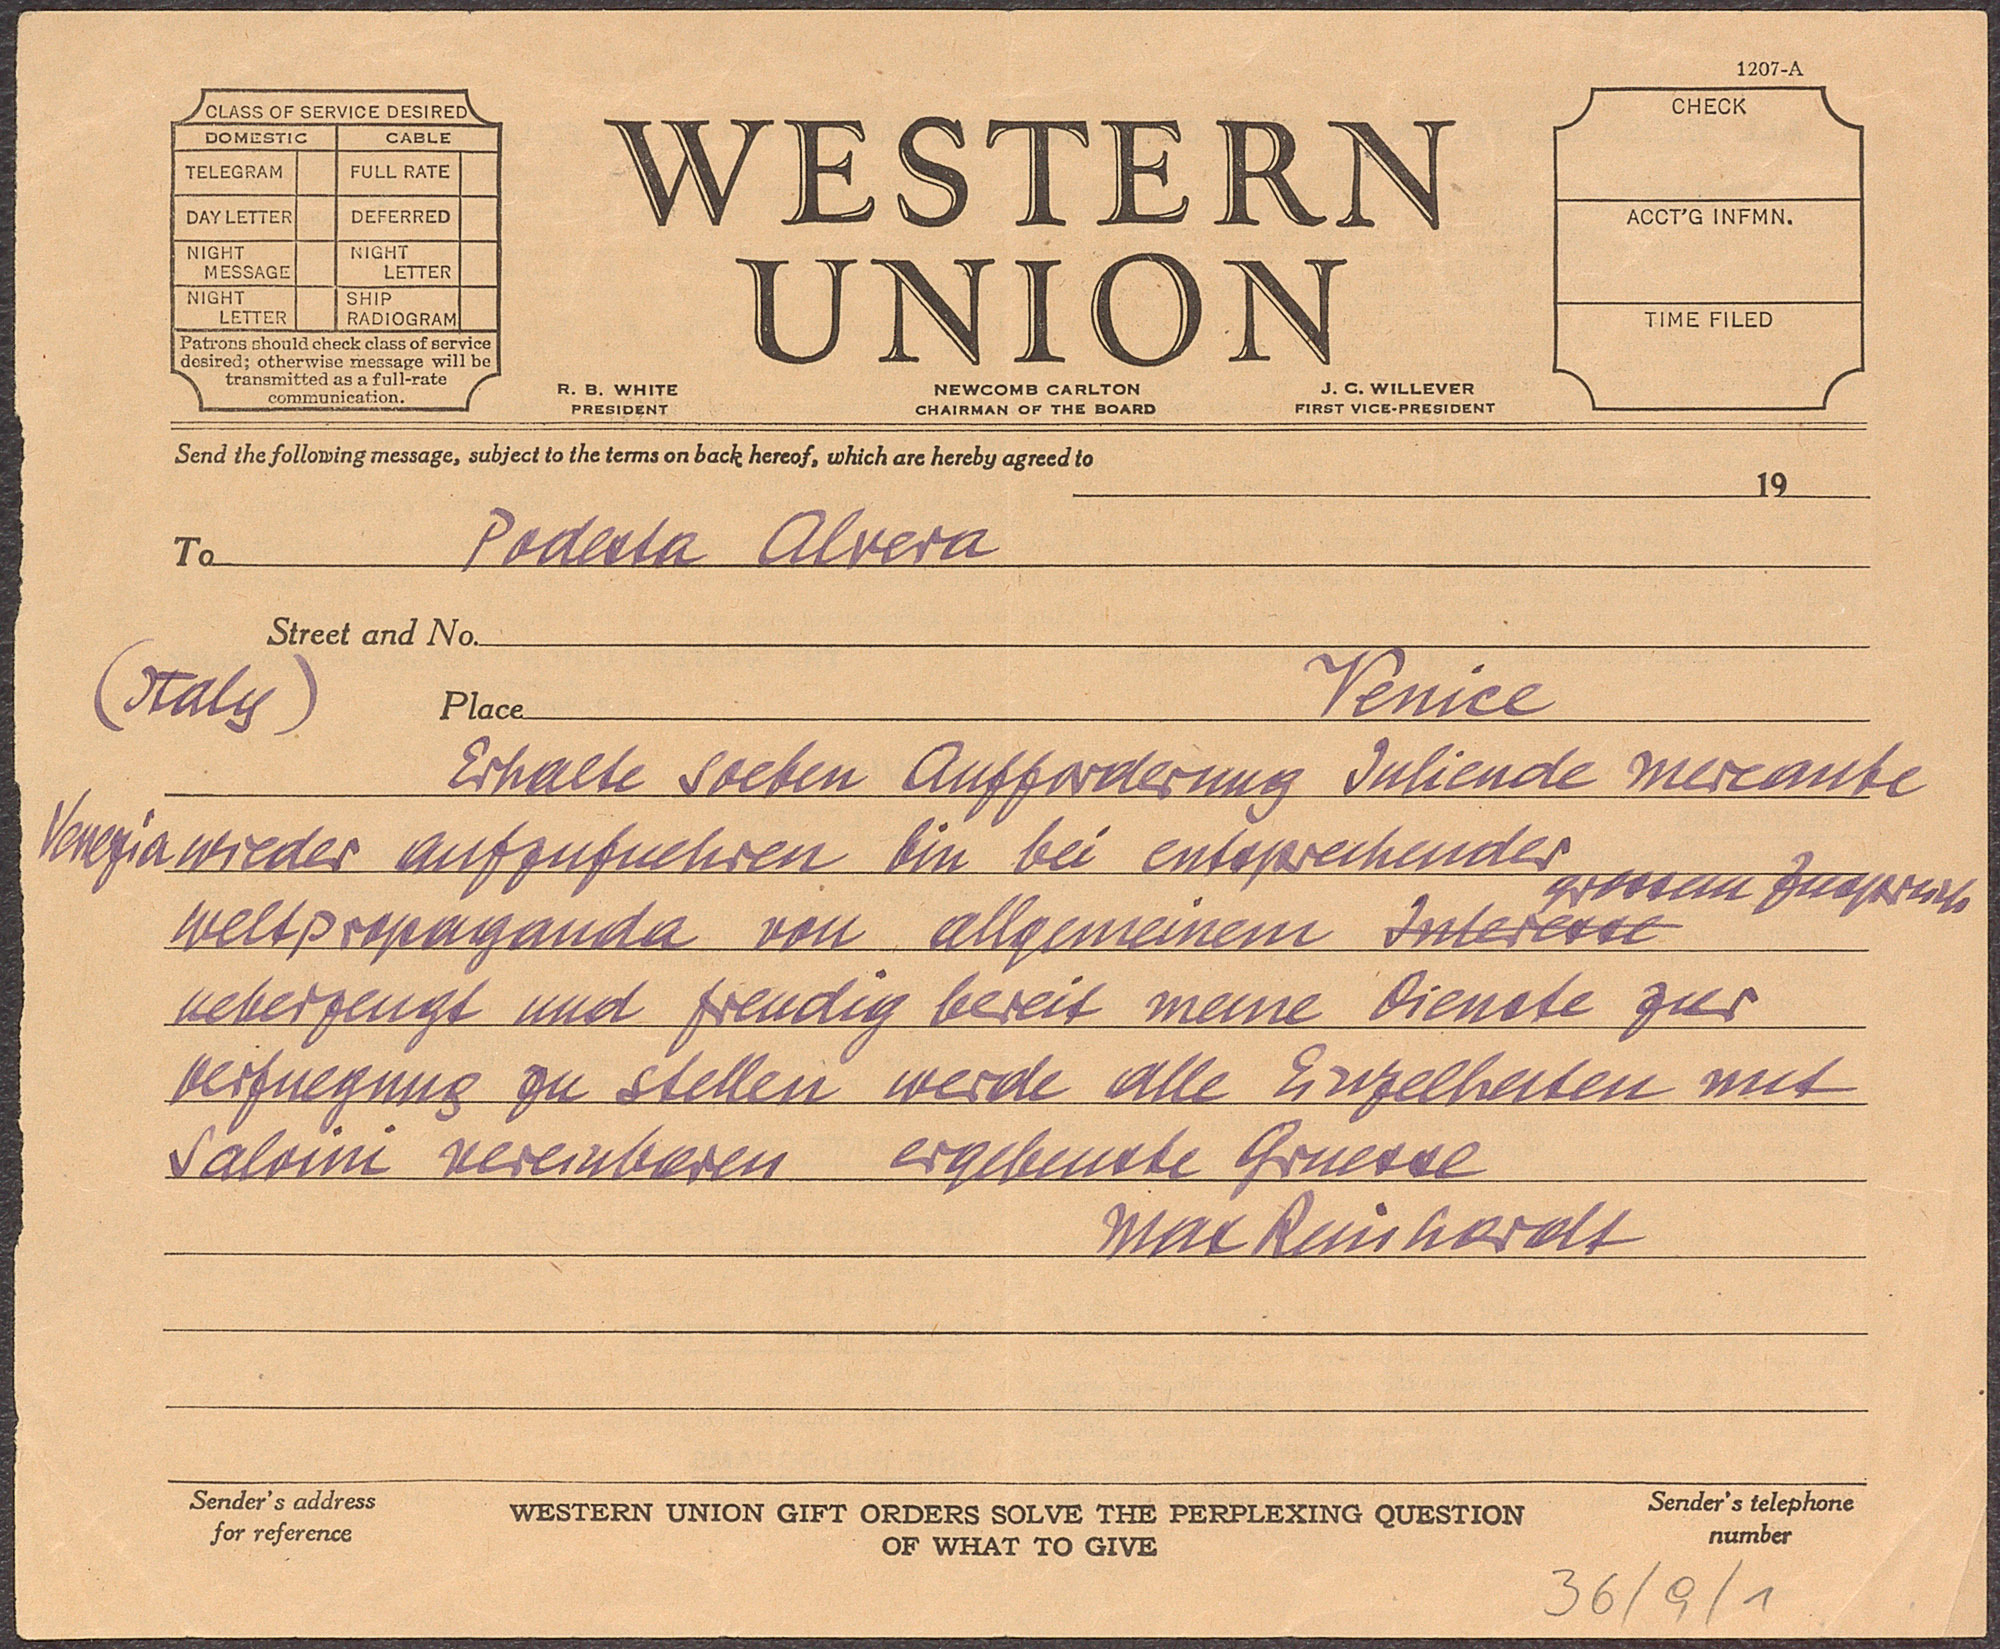 1207-A
CLASS OF SERVICE DESIRED
DOMESTIC CABLE
TELEGRAM FULL RATE
DAY LETTER DEFERRED
NIGHT MESSAGE NIGHT LETTER
NIGHT LETTER SHIP RADIOGRAM
Patrons should check class of service
desired; otherwise message will be
transmitted as a full-rate
communication.
WESTERN
UNION
R. B. WHITE
PRESIDENT
NEWCOMB CARLTON
CHAIRMAN OF THE BOARD
J. C. WILLEVER
FIRST VICE-PRESIDENT
CHECK
ACCT'G INFMN.
TIME FILED
Send the following message, subject to the terms on back hereof, which are hereby agreed to
19
To Podesta Alvera
Street and No.
(Italy) Place Venice
Erhalte soeben Aufforderung Juliende mercante
Venezia wieder aufzufuehren bin bei entsprechender
grossem Zuspruch
weltpropaganda von allgemeinem Interesse
ueberzeugt und freudig bereit meine Dienste zur
verfuegung zu stellen werde alle Einzelheiten mit
Salvini vereinbaren ergebenste Gruesse
Max Reinhardt
Sender's address
for reference
WESTERN UNION GIFT ORDERS SOLVE THE PERPLEXING QUESTION
OF WHAT TO GIVE
Sender's telephone
number
36/9/1